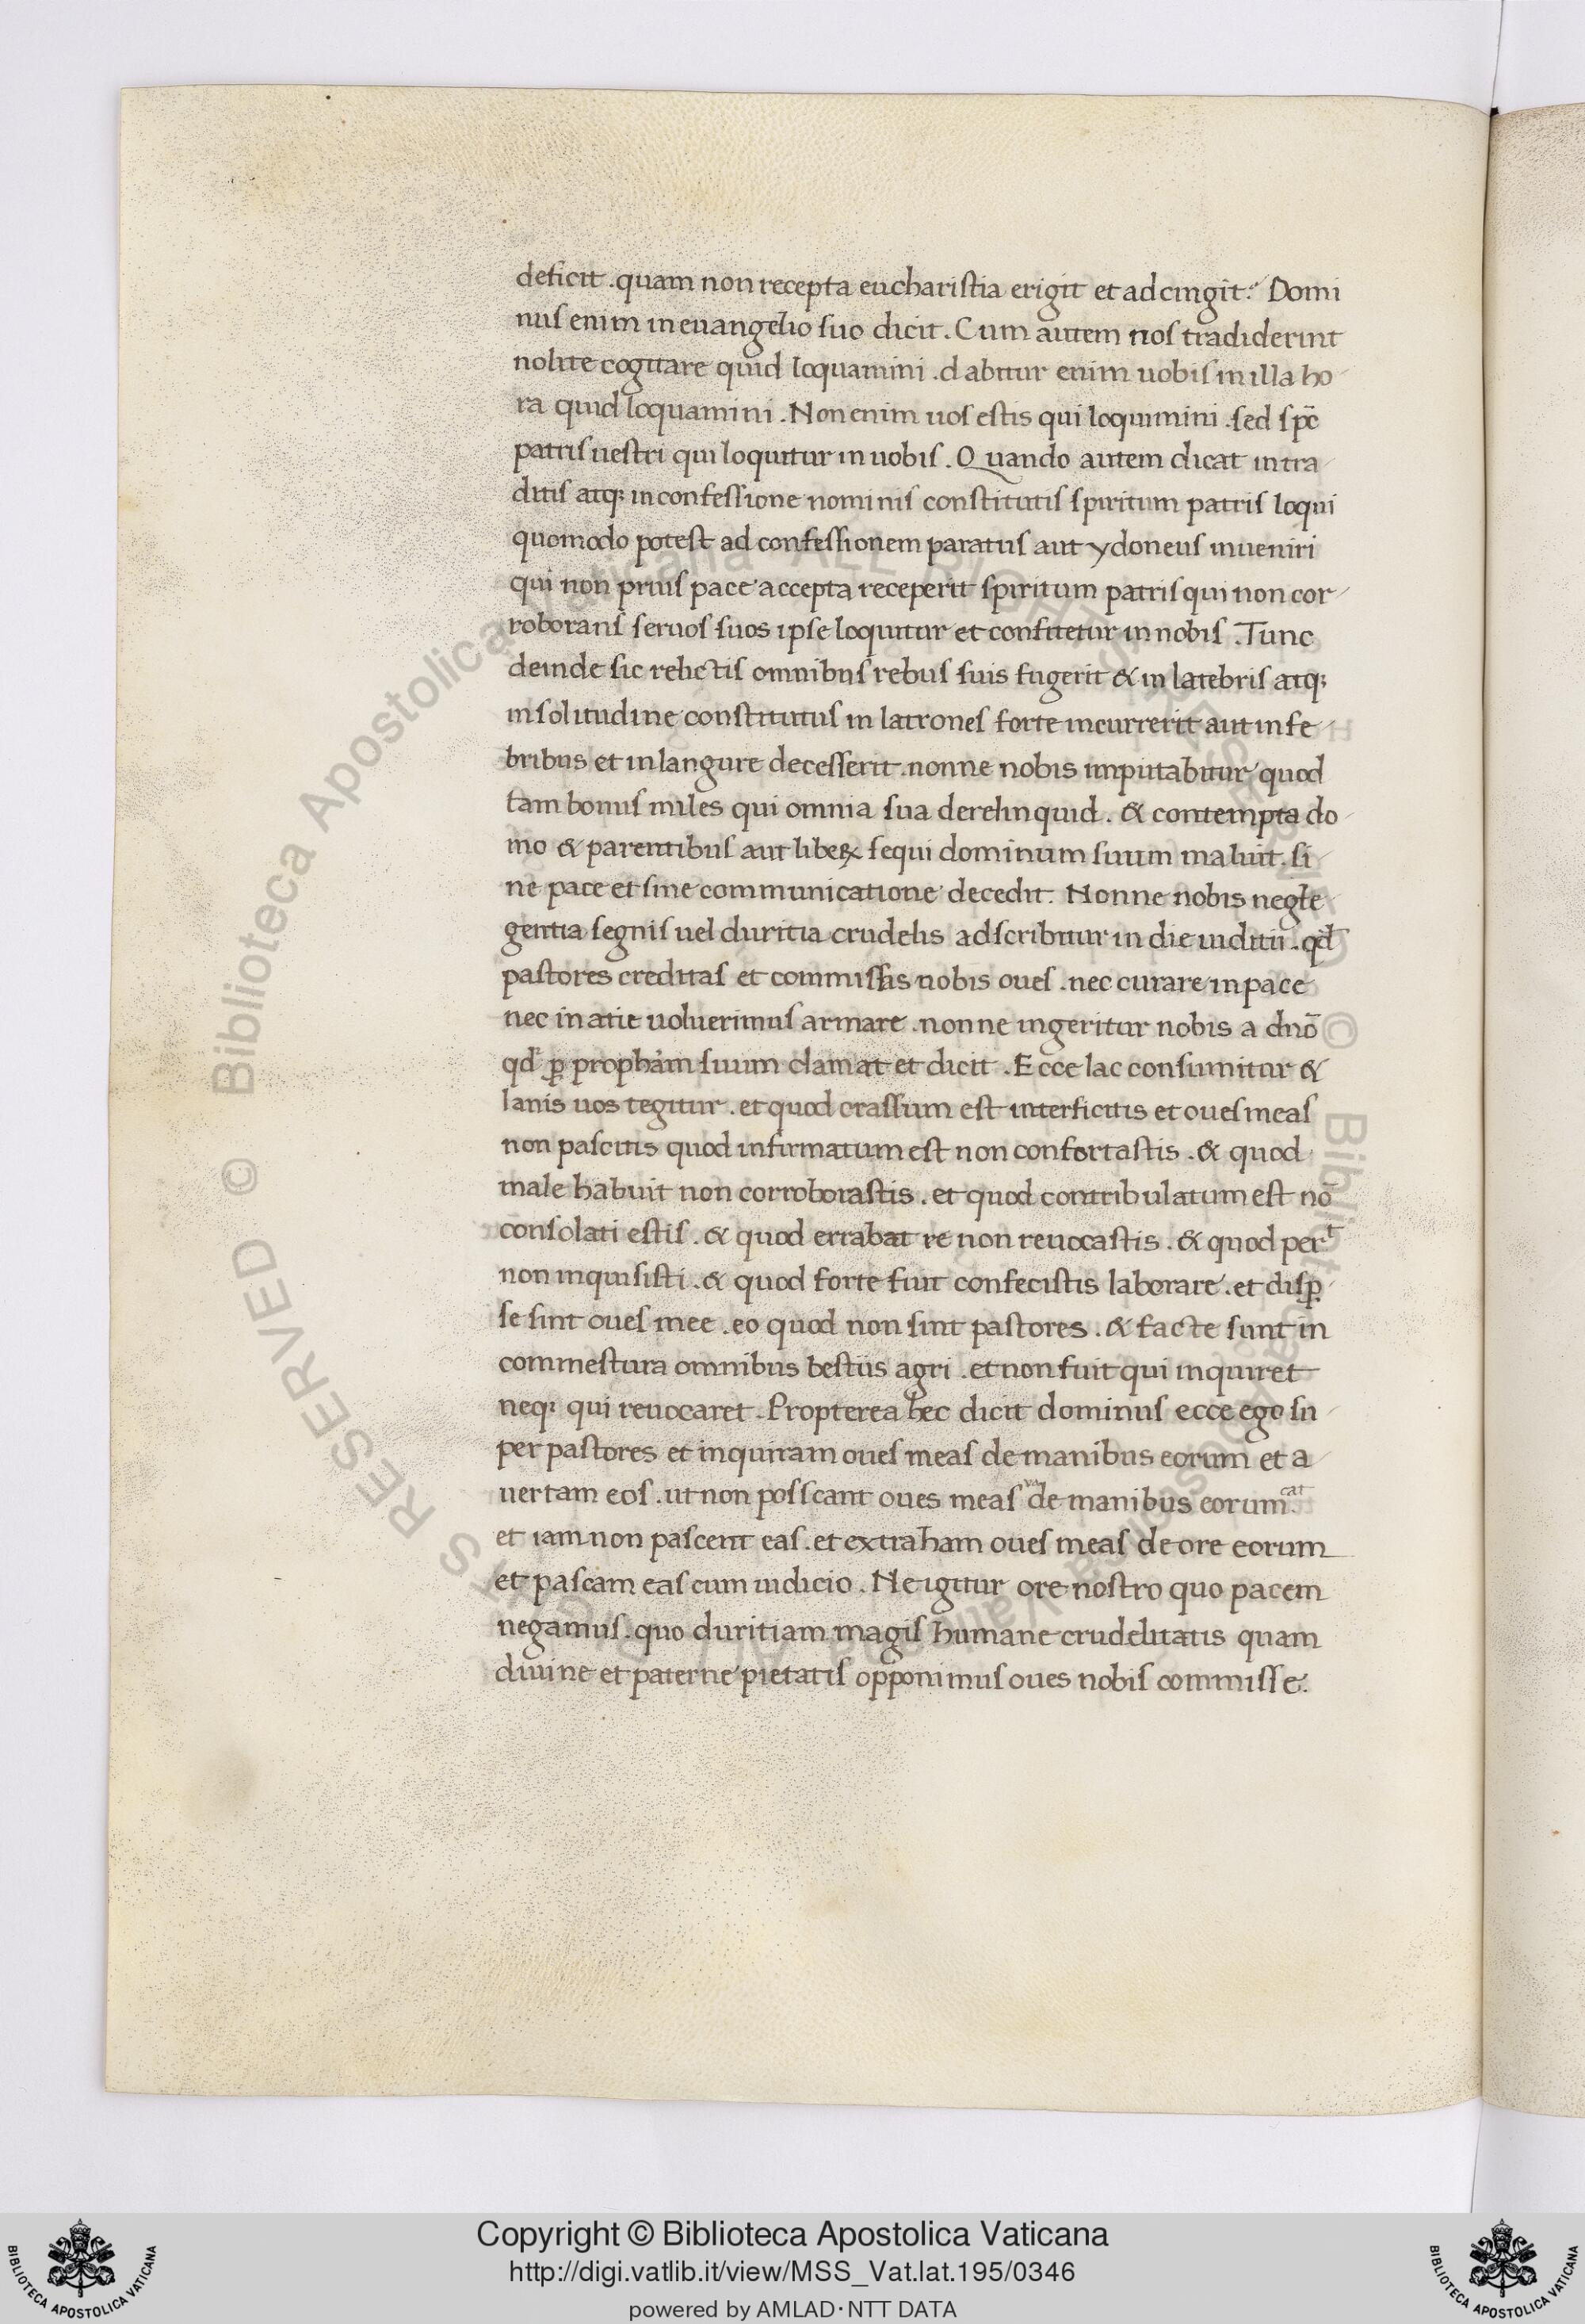 deficit . quam non recepta eucharistia erigit et adcingit: Domi
nus enim in euangelio suo dicit . Cum autem nos tradiderint
nolite cogitare quid loquamini . dabitur enim uobis in illa ho
ra quid loquamini . Non enim uos estis qui loquimini . sed spc̄
patris uestri qui loquitur in uobis . Quando autem dicat in tra
ditis atq; in confessione nominis constitutis spiritum patris loqui
quomodo potest ad confessionem paratus aut ydoneus inueniri
qui non prius pace accepta receperit spiritum patris qui non cor
roborans seruos suos ipse loquitur et confitetur in nobis . Tunc
deinde sic relictis omnibus rebus suis fugerit & in latebris atq;
in solitudine constitutus in latrones forte incurrerit aut in fe
bribus et in langure decesserit . nonne nobis imputabitur quod
tam bonus miles qui omnia sua derelinquid . & contempta do
mo & parentibus aut liberꝝ sequi dominum suum maluit . si
ne pace et sine communicatione decedit . Nonne nobis negle
gentia segnis uel duritia crudelis adscribitur in die iuditii . qđ
pastores creditas et commissas nobis oues . nec curare in pace
nec in atie uoluerimus armare . nonne ingeritur nobis a dnō
qđ ꝑ propham suum clamat et dicit . Ecce lac consumitur &
lanis uos tegitur . et quod crassum est interficitis et oues meas
non pascitis quod infirmatum est non confortastis . & quod
male habuit non corroborastis . et quod contribulatum est nō
consolati estis . & quod errabat re non reuocastis . & quod pert
non inquisisti . & quod forte fuit confecistis laborare . et disꝑ
se sint oues mee . eo quod non sint pastores . & facte sunt in
commestura omnibus bestiis agri . et non fuit qui inquiret
neq; qui reuocaret . Propterea hec dicit dominus ecce ego su
per pastores et inquiram oues meas de manibus eorum et a
uertam eos . ut non posscant oues meas va de manibus eorum cat .
et iam non pascent eas . et extraham oues meas de ore eorum
et pascam eas cum iudicio . Ne igitur ore nostro quo pacem
negamus . quo duritiam magis humane crudelitatis quam
diuine et paterne pietatis opponimus oues nobis commisse .
Copyright © Biblioteca Apostolica Vaticana
http://digi.vatlib.it/view/MSS_Vat.lat.195/0346
powered by AMLAD·NTT DATA
BIBLIOTECA APOSTOLICA VATICANA
BIBLIOTECA APOSTOLICA VATICANA
© Biblioteca Apostolica Vaticana ALL RIGHTS RESERVED
© Biblioteca Apostolica Vaticana ALL RIGHTS RESERVED